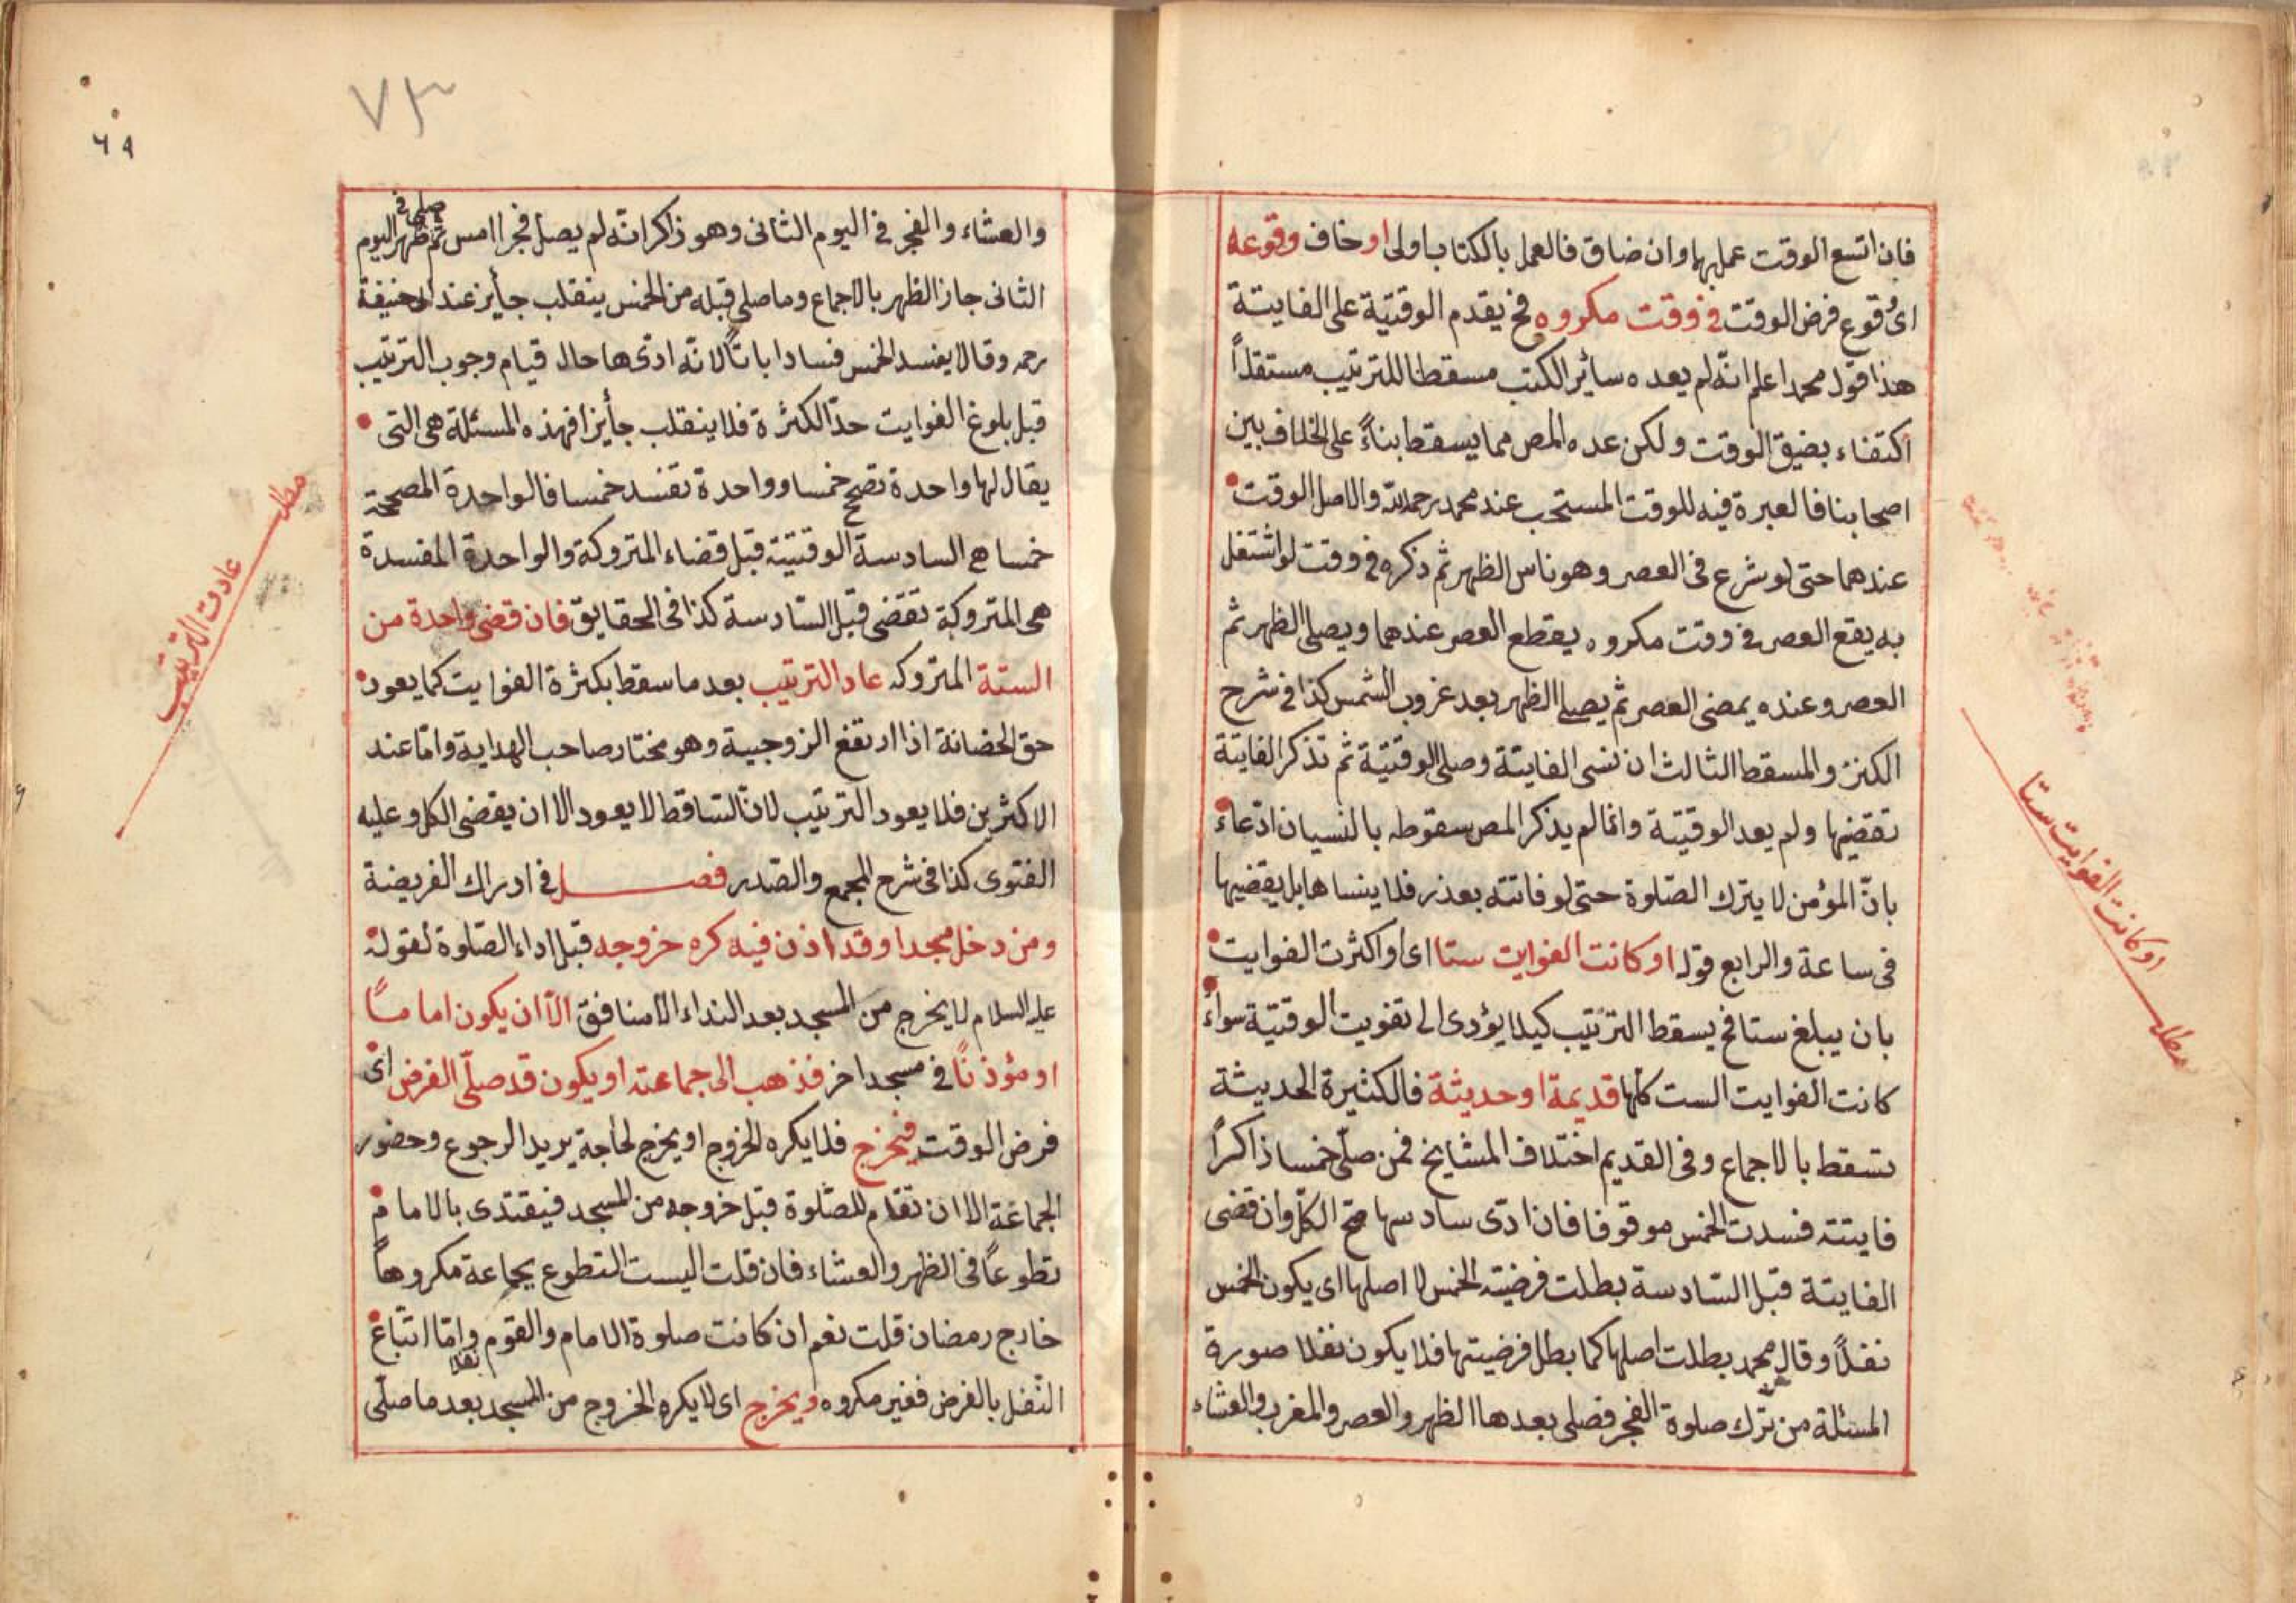 فان اتسع الوقت عمل بهما وان ضاق فالعمل بالكتاب اولى او خاف وقوعه
اى وقوع فرض الوقت فى وقت مكروه فح يقدم الوقتية على الفايتة
هذا قول محمد اعلم انه لم يعده سائر الكتب مسقطا للترتيب مستقلاً
اكتفاء بضيق الوقت ولكن عده المص مما يسقط بناءً على الخلاف بين
اصحابنا فالعبرة فيه للوقت المستحب عند محمد رحمه الله والاصل الوقت
عندهما حتى لو شرع فى العصر وهو ناس الظهر ثم ذكره فى وقت لو اشتغل
به يقع العصر فى وقت مكروه يقطع العصر عندهما ويصلى الظهر ثم
العصر وعنده يمضى العصر ثم يصلى الظهر بعد غروب الشمس كذا فى شرح
الكنز والمسقط الثالث ان نسى الفايتة وصلى الوقتية ثم تذكر الفايتة
تقضيها ولم يعد الوقتية وانما لم يذكر المص سقوطه بالنسيان ادعاء
بانّ المؤمن لا يترك الصّلوة حتى لو فاتته بعذر فلا ينساها بل يقضيها
فى ساعة والرابع قوله او كانت الفوايت ستا اى او اكثرت الفوايت
بان يبلغ ستا فح يسقط الترتيب كيلا يؤدى الى تفويت الوقتية سواء
كانت الفوايت الست كلها قديمة او حديثة فالكثيرة الحديثة
تسقط بالاجماع وفى القديم اختلاف المشايخ فمن صلّى خمسا ذاكراً
فايتته فسدت الخمس موقوفا فان ادّى سادسها صح الكلّ وان قضى
الفايتة قبل السّادسة بطلت فرضيته الخمس لا اصلها اى يكون الخمس
نفلاً وقال محمد بطلت اصلها كما بطل فرضيتها فلا يكون نفلا صورة
المسئلة من ترك صلوة الفجر فصلى بعدها الظهر والعصر والمغرب والعشاء
او كانت الفوايت ستا
مطلب
٧٣
٦٩
والعشاء والفجر فى اليوم الثانى وهو ذاكر انّه لم يصل فجر امس ثم صلى فى ظهر اليوم
الثانى جاز الظهر بالاجماع وما صلى قبله من الخمس ينقلب جأيز عند ابى حنيفة
رحمه وقالا يفسد الخمس فسادا باتاً لانّه ادّى ها حال قيام وجوب الترتيب
قبل بلوغ الفوايت حدّ الكثرة فلا ينقلب جأيزا فهذه المسئلة هى التى
يقال لها واحدة تصحح خمسا وواحدة تفسد خمسا فالواحدة المصححة
خمسا هى السادسة الوقتية قبل قضاء المتروكة والواحدة المفسدة
هى المتروكة تقضى قبل السّادسة كذا فى الحقايق فان قضى واحدة من
الستة المتروكه عاد الترتيب بعد ما سقط بكثرة الفوايت كما يعود
حق الحضانة اذا ارتفع الزوجية وهو مختار صاحب الهداية وامّا عند
الاكثرين فلا يعود الترتيب لانّ السّاقط لا يعود الا ان يقضى الكل وعليه
الفتوى كذا فى شرح المجمع والصّدر فصل فى ادراك الفريضة
ومن دخل مسجدا وقد اذن فيه كره خروجه قبل اداء الصّلوة لقوله
عليه السلام لا يخرج من المسجد بعد النداء الا منافق الّا ان يكون اماماً
او مؤذناً فى مسجد اخر فذهب الى جماعته او يكون قد صلّى الفرض اى
فرض الوقت فيخرج فلا يكره الخروج او يخرج لحاجة يريد الرجوع وحضور
الجماعة الا ان تقام للصّلوة قبل خروجه من المسجد فيقتدى بالامام
تطوعاً فى الظهر والعشاء فان قلت اليست التطوع بجماعة مكروهاً
خارج رمضان قلت نعم ان كانت صلوة الامام والقوم نفلا وامّا اتباع
النّفل بالفرض فغير مكروه ويخرج اى لا يكره الخروج من المسجد بعد ما صلّى
مطلب
عادت الترتيب